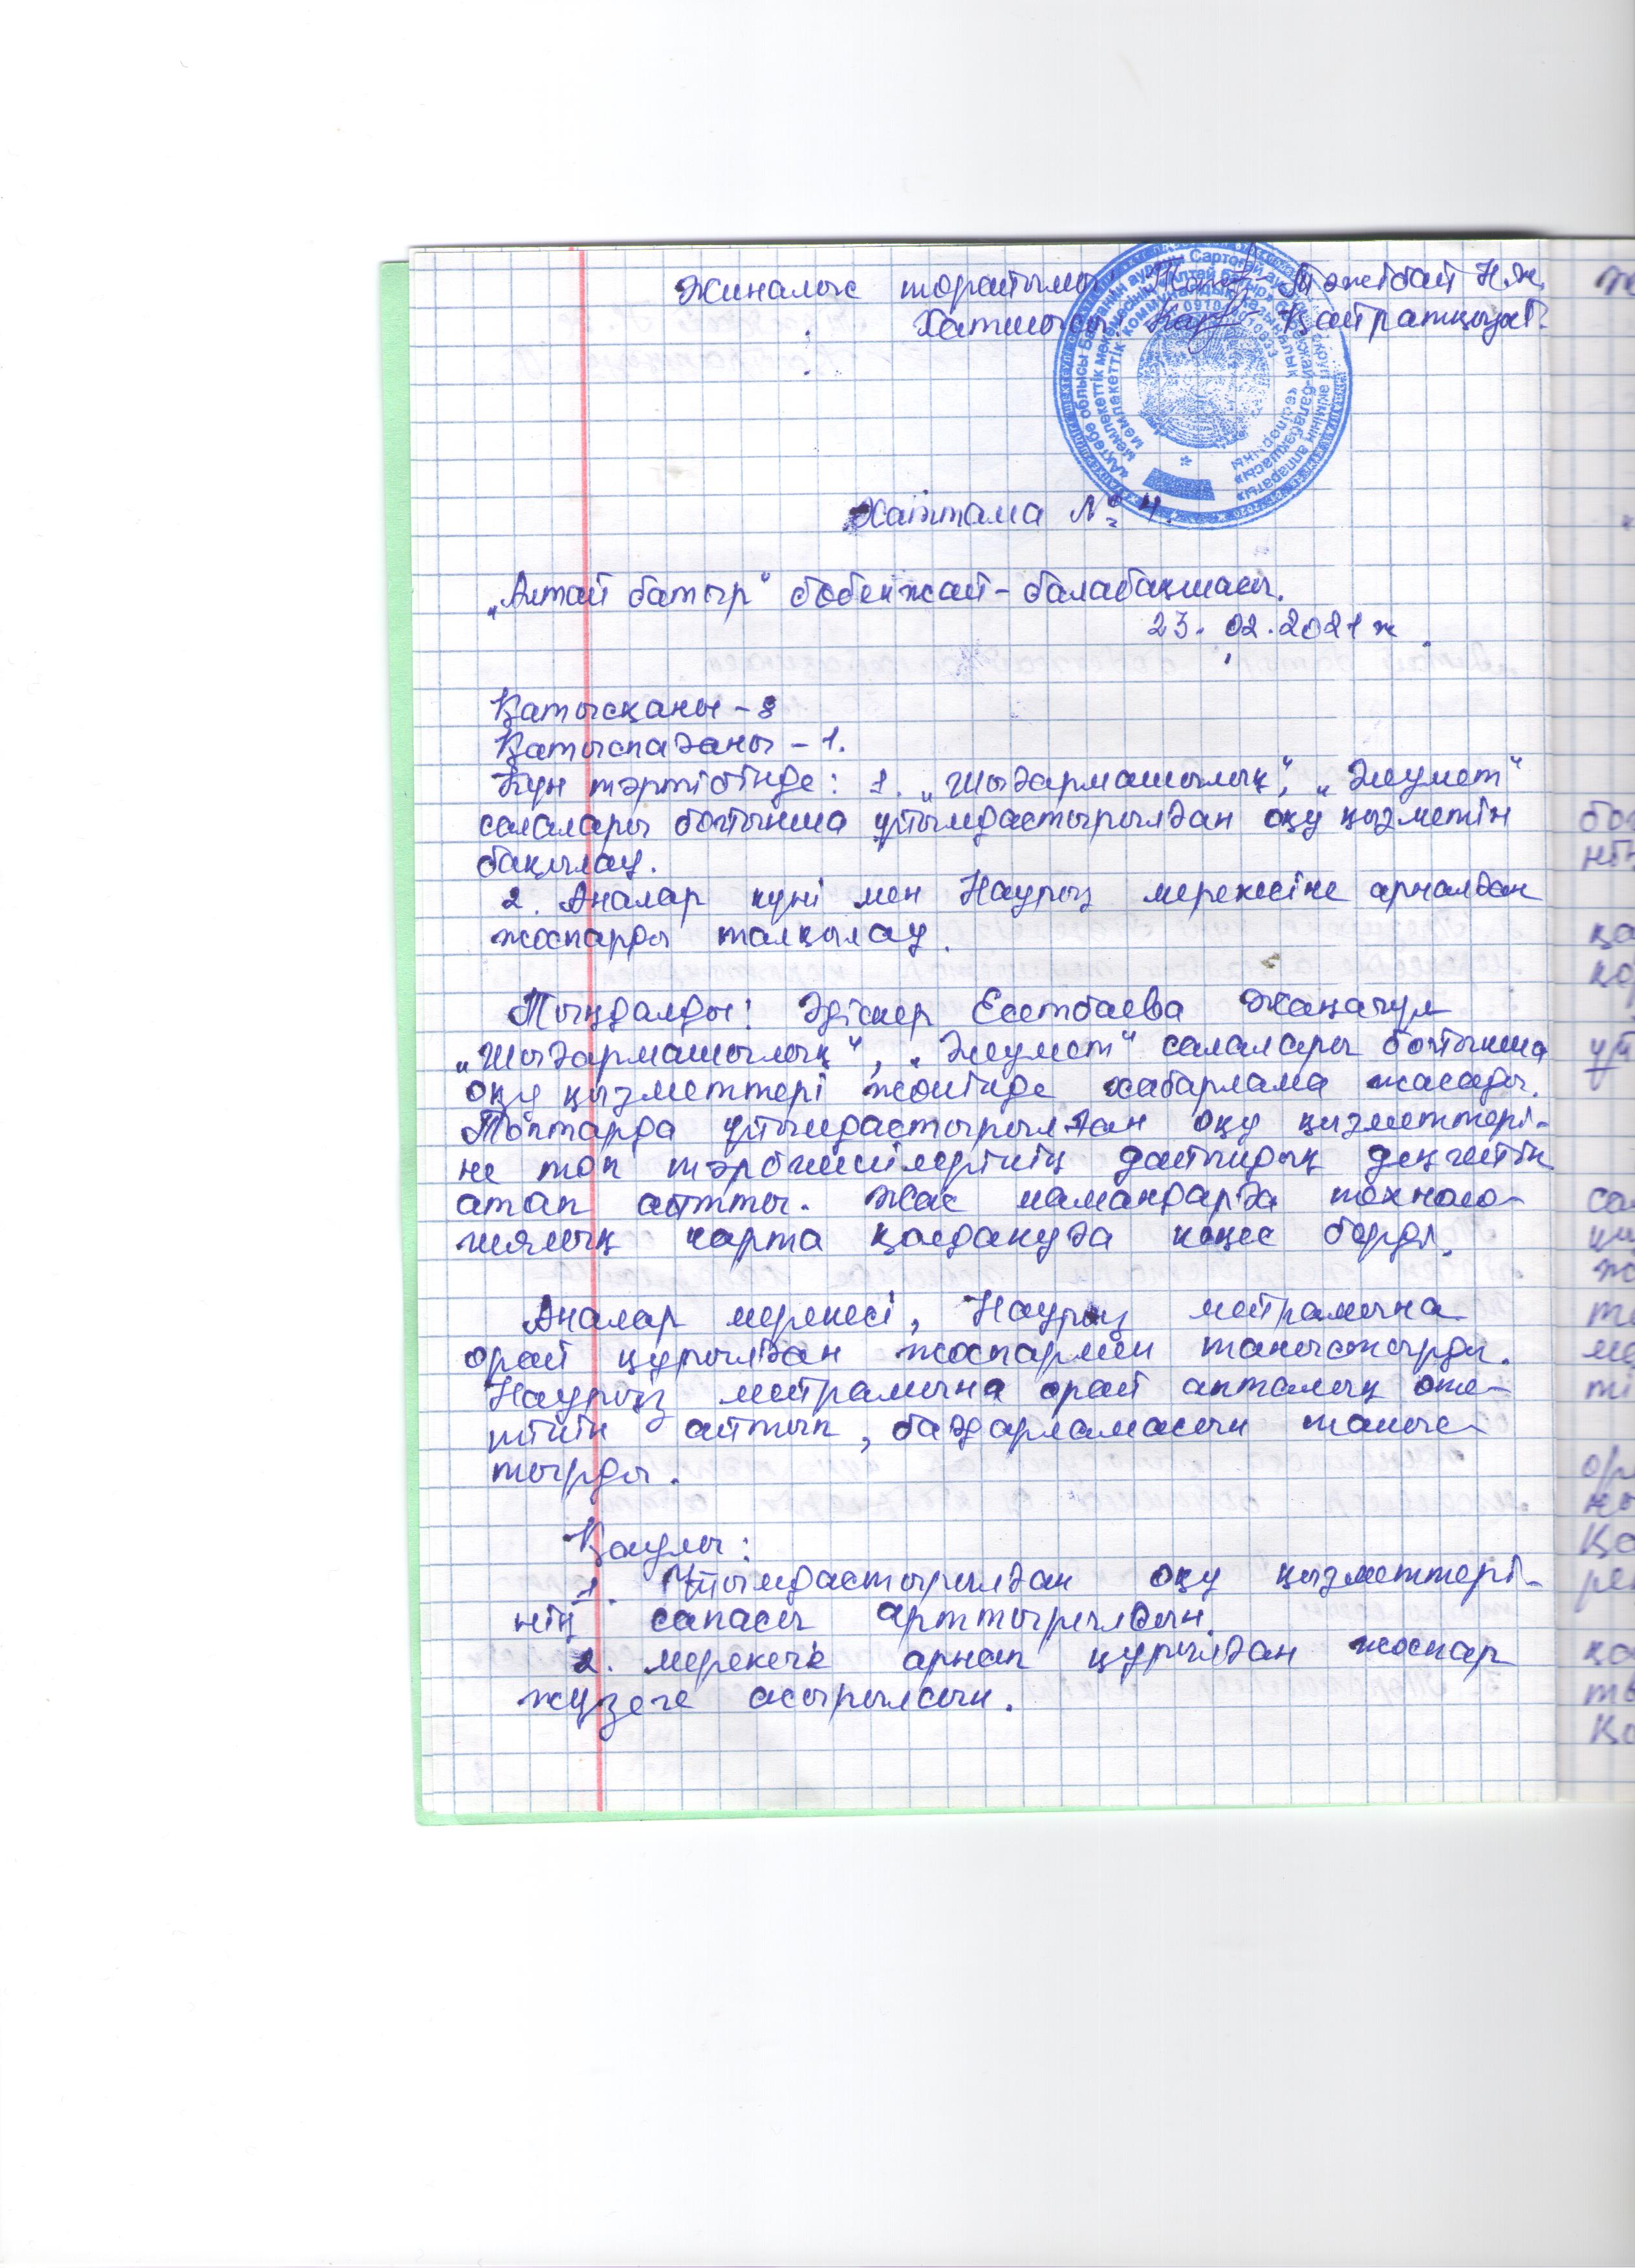 Жиналыс төрайымы Тәжібай Н.Ж.
Хатшысы Қайратқызы
Хаттама № 4.
„Алтай батыр" бөбекжай-балабақшасы.
23.02.2021ж
Қатысқаны - 8
Қатыспағаны - 1.
Күн тәртібінде: 1. „Шығармашылық", „Әлеумет"
салалары бойынша ұйымдастырылған оқу қызметін
бақылау.
2. Аналар күні мен Наурыз мерекесіне арналған
жоспарды талқылау.
Тыңдалды: Әдіскер Есетбаева Жаңагүл
„Шығармашылық", „Әлеумет" салалары бойынша
оқу қызметтері жөнінде хабарлама жасады.
Топтарда ұйымдастырылған оқу қызметтері-
не топ тәрбиешілерінің дайындық деңгейін
атап айтты. Жас мамандарға техноло-
гиялық карта қолдануға кеңес берді.
Аналар мерекесі, Наурыз мейрамына
орай құрылған жоспармен таныстырды.
Наурыз мейрамына орай апталық өте-
тінін айтып, бағдарламасын таныс-
тырды.
Қаулы:
1. Ұйымдастырылған оқу қызметтері-
нің сапасы арттырылсын.
2. Мерекеге арнап құрылған жоспар
жүзеге асырылсын.